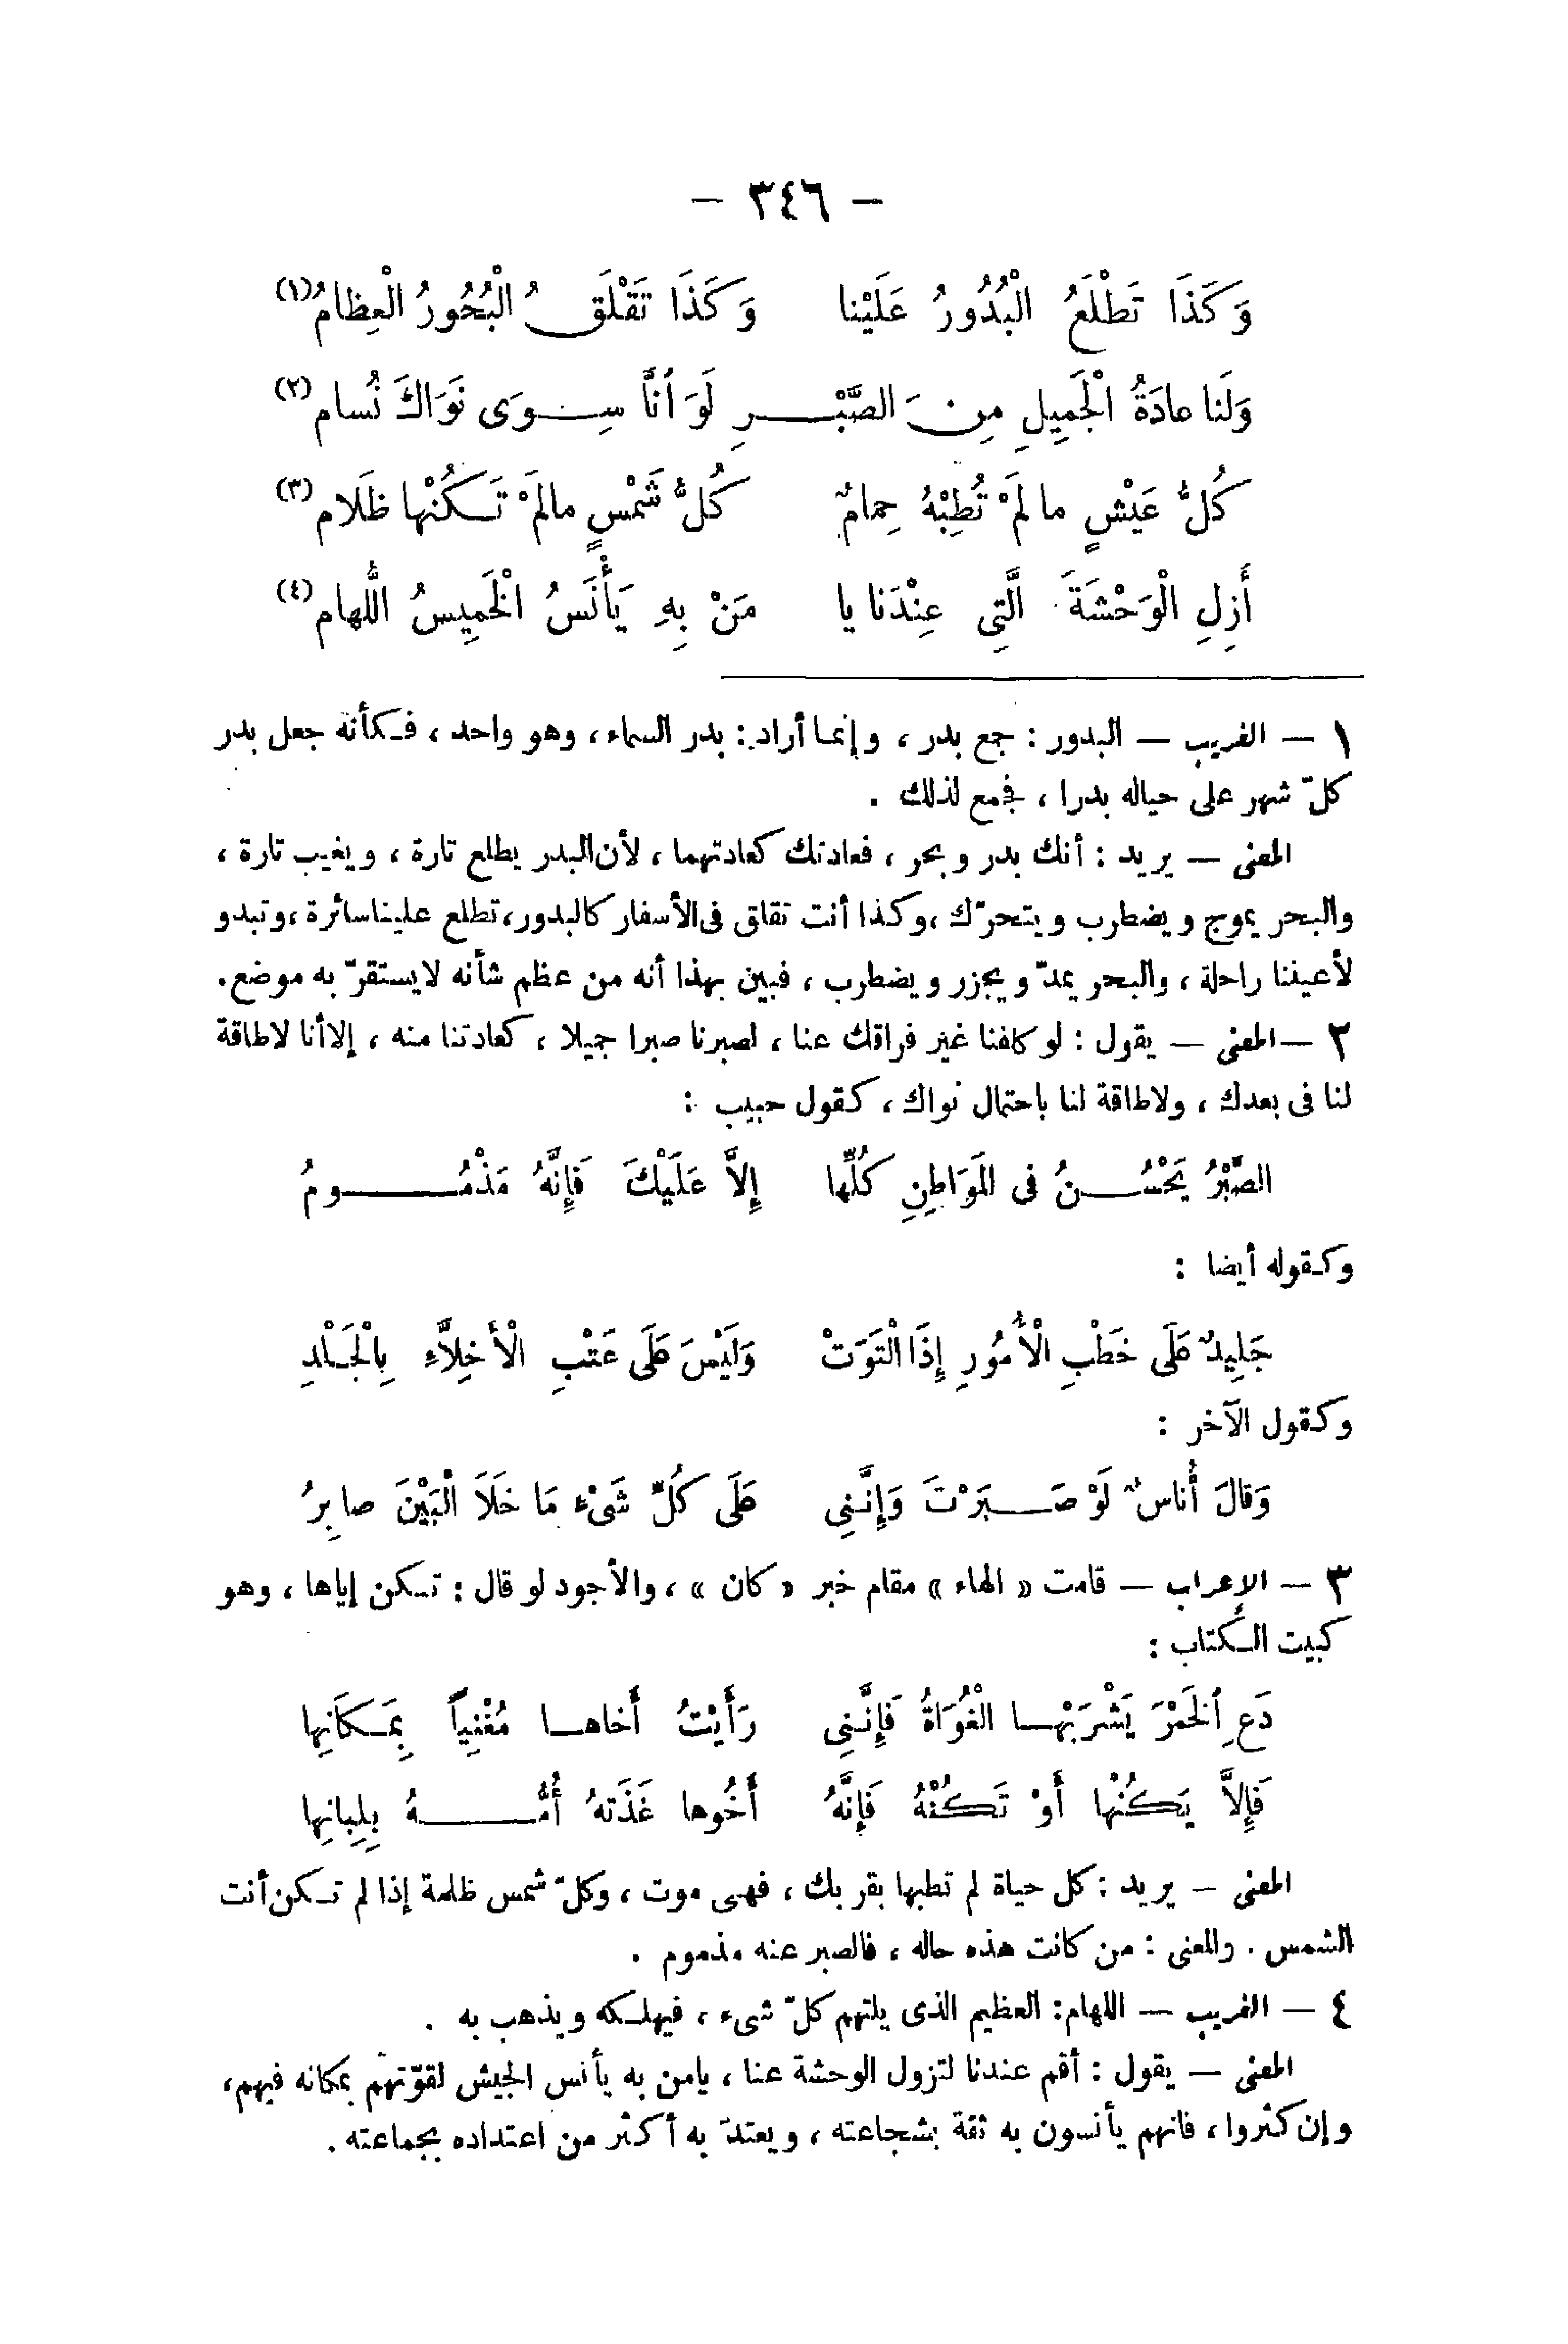 — ٣٤٦ —
وَكَذَا تَطْلَعُ الْبُدُورُ عَلَيْنا وَكَذَا تَقْلَقُ الْبُحُورُ الْعِظامُ (١)
وَلَنا عادَةُ الْجَمِيلِ مِنَ الصَّبْرِ لَوَ أنَّا سِوَى نَوَاكَ نُسام (٢)
كُلُّ عَيْشٍ ما لَمْ تُطِبْهُ حِمامٌ كُلُّ شَمْسٍ مالَمْ تَكُنْها ظَلام (٣)
أَزِلِ الْوَحْشَةَ الَّتِي عِنْدَنا يا مَنْ بِهِ يَأْنَسُ الْخَمِيسُ اللُّهام (٤)
١ — الغريب — البدور : جمع بدر ، وإنما أراد : بدر السماء ، وهو واحد ، فكأنه جعل بدر
كلّ شهر على حياله بدرا ، فجمع لذلك .
المعنى — يريد : أنك بدر وبحر ، فعادتك كعادتهما ، لأن البدر يطلع تارة ، ويغيب تارة ،
والبحر يموج ويضطرب ويتحرّك ، وكذا أنت تقلق فى الأسفار كالبدور ، تطلع علينا سائرة ، وتبدو
لأعيننا راحلة ، والبحر يمدّ ويجزر ويضطرب ، فبين بهذا أنه من عظم شأنه لايستقرّ به موضع .
٢ — المعنى — يقول : لو كلفنا غير فراقك عنا ، لصبرنا صبرا جميلا ، كعادتنا منه ، إلا أنا لاطاقة
لنا فى بعدك ، ولاطاقة لنا باحتمال نواك ، كقول حبيب :
الصَّبْرُ يَحْسُنُ فى المَوَاطِنِ كُلِّها إِلاَّ عَلَيْكَ فَإِنَّهُ مَذْمُومُ
وكقوله أيضا :
جَلِيدٌ عَلَى خَطْبِ الْأُمُورِ إِذَا الْتَوَتْ وَلَيْسَ عَلَى عَتْبِ الْأَخِلاَّءِ بِالْجَلْدِ
وكقول الآخر :
وَقالَ أُناسٌ لَوْ صَبَرْتَ وَإِنَّنِى عَلَى كُلِّ شَىْءٍ مَا خَلاَ الْبَيْنَ صابِرُ
٣ — الإعراب — قامت « الهاء » مقام خبر « كان » ، والأجود لو قال : تكن إياها ، وهو
كبيت الكتاب :
دَعِ الْخَمْرَ يَشْرَبْها الْغُوَاةُ فَإِنَّنِى رَأَيْتُ أَخاها مُغْنِياً بِمَكَانِها
فَإِلاَّ يَكُنْها أَوْ تَكُنْهُ فَإِنَّهُ أَخُوها غَذَتهُ أُمُّهُ بِلِبانِها
المعنى — يريد : كل حياة لم تطبها بقربك ، فهى موت ، وكلّ شمس ظلمة إذا لم تكن أنت
الشمس . والمعنى : من كانت هذه حاله ، فالصبر عنه مذموم .
٤ — الغريب — اللهام : العظيم الذى يلتهم كلّ شىء ، فيهلكه ويذهب به .
المعنى — يقول : أقم عندنا لتزول الوحشة عنا ، يامن به يأنس الجيش لقوّتهم بمكانه فيهم ،
وإن كثروا ، فانهم يأنسون به ثقة بشجاعته ، ويعتدّ به أكثر من اعتداده بجماعته .